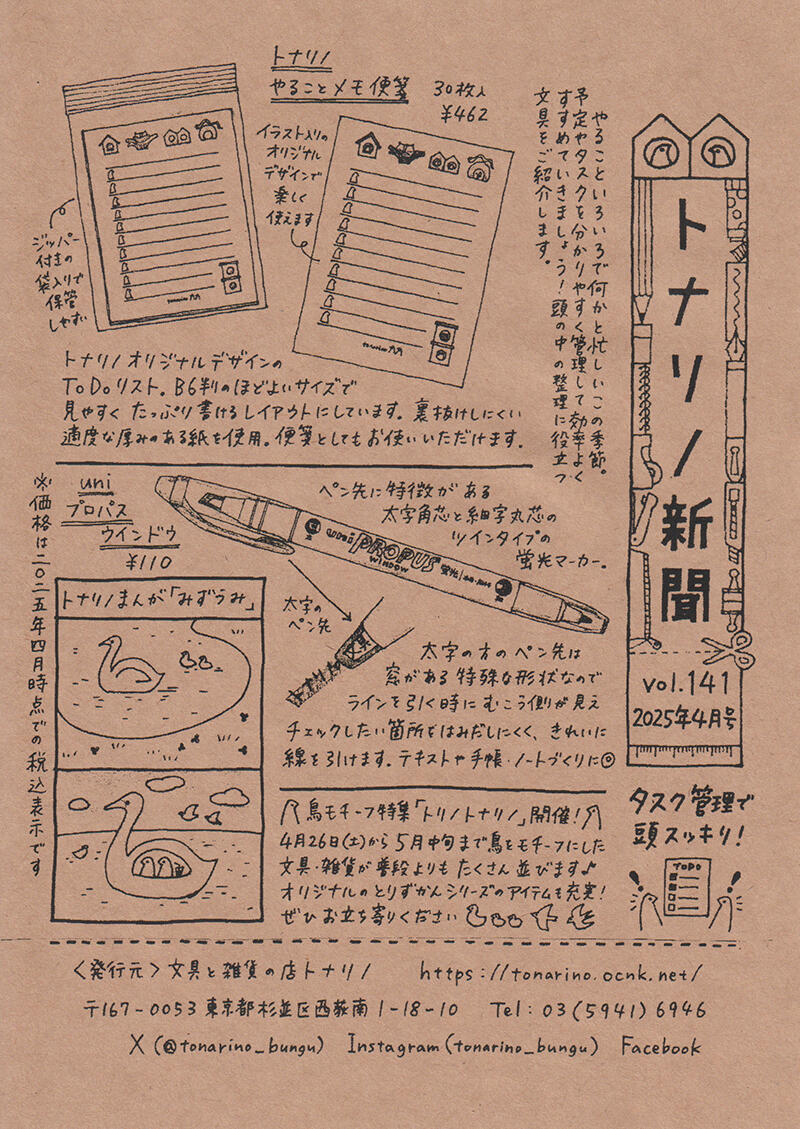 トナリノ新聞
vol.141
2025年4月号
タスク管理で
頭スッキリ!
ToDo
やることいろいろで何かと忙しいこの季節。
予定やタスクを分かりやすく管理して効率よく
すすめていきましょう!頭の中の整理に役立つ
文具をご紹介します。
トナリノ
やることメモ便箋 30枚入
¥462
イラスト入りの
オリジナル
デザインで
楽しく
使えます
ジッパー
付きの
袋入りで
保管
しやすい
トナリノオリジナルデザインの
ToDoリスト。B6判のほどよいサイズで
見やすくたっぷり書けるレイアウトにしています。裏抜けしにくい
適度な厚みのある紙を使用。便箋としてもお使いいただけます。
uni
プロパス
ウインドウ
¥110
ペン先に特徴がある
太字角芯と細字丸芯の
ツインタイプの
蛍光マーカー。
uni PROPUS WINDOW
太字の
ペン先
太字の方のペン先は
窓がある特殊な形状なので
ラインを引く時にむこう側が見え
チェックしたい箇所をはみだしにくく、きれいに
線を引けます。テキストや手帳・ノートづくりに◎
トナリノまんが「みずうみ」
※価格は二〇二五年四月時点での税込表示です
鳥モチーフ特集「トリノトナリノ」開催!
4月26日(土)から5月中旬まで鳥をモチーフにした
文具・雑貨が普段よりもたくさん並びます♪
オリジナルのとりずかんシリーズのアイテムも充実!
ぜひお立ち寄りください
<発行元>文具と雑貨の店トナリノ https://tonarino.ocnk.net/
〒167-0053 東京都杉並区西荻南1-18-10 Tel: 03(5941)6946
X (@tonarino_bungu) Instagram(tonarino_bungu) Facebook